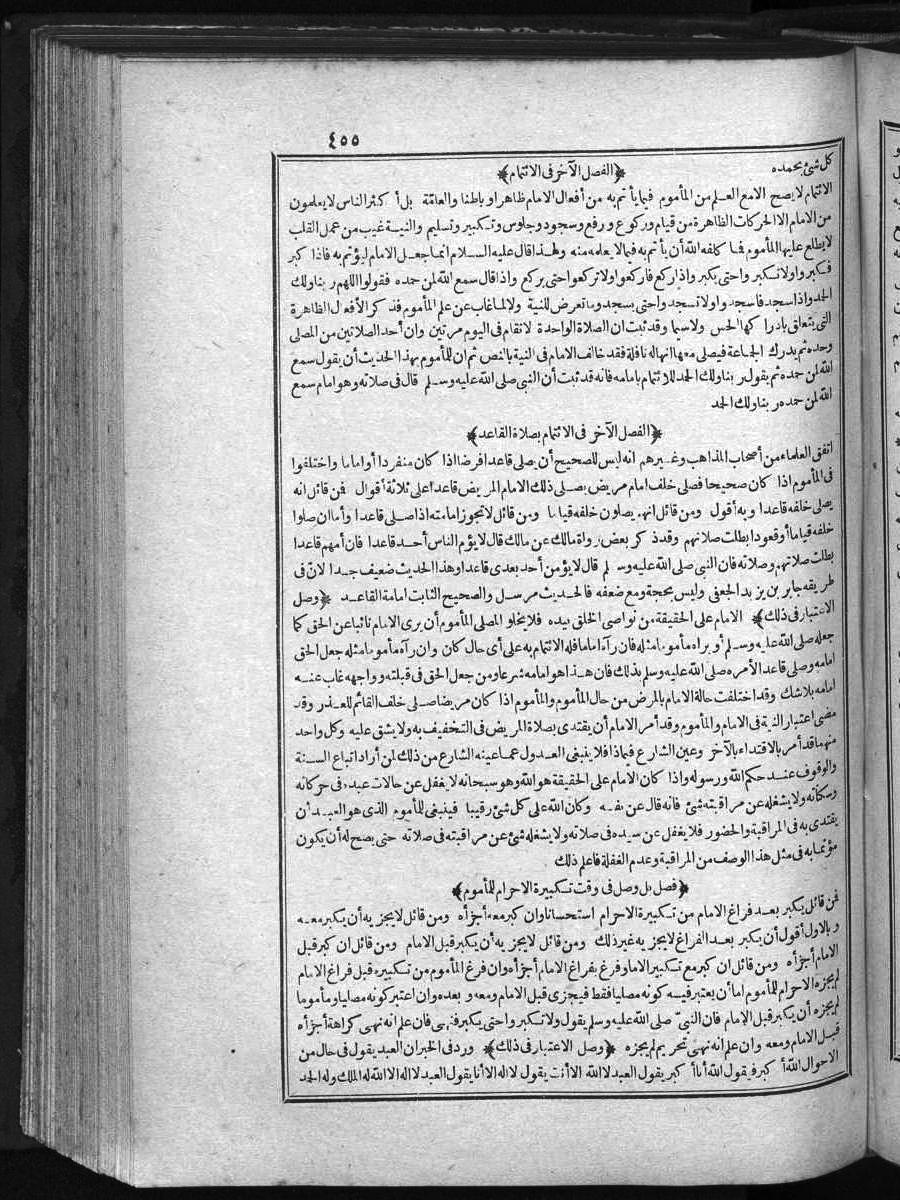 ٤٥٥
كل شئ بحمده ﴿الفصل الآخر فى الائتمام﴾
الائتمام لا يصح الا مع العلم من المأموم فيما يأتم به من أفعال الامام ظاهرا وباطنا والعامّة بل أكثر الناس لا يعلمون
من الامام الا الحركات الظاهرة من قيام وركوع ورفع وسجود وجلوس وتكبير وتسليم والنية غيب من عمل القلب
لا يطلع عليها المأموم فما كلفه الله أن يأتم به فيما لا يعلمه منه ولهذا قال عليه السلام انما جعل الامام ليؤتم به فاذا كبر
فكبروا ولا تكبروا حتى يكبر واذا ركع فاركعوا ولا تركعوا حتى يركع واذا قال سمع الله لمن حمده فقولوا اللهم ربنا ولك
الحمد واذا سجد فاسجدوا ولا تسجدوا حتى يسجد وما تعرض للنية ولا لما غاب عن علم المأموم فذكر الأفعال الظاهرة
التى يتعلق بادراكها الحس ولا سيما وقد ثبت ان الصلاة الواحدة لا تقام فى اليوم مرتين وان أحد الصلاتين من المصلى
وحده ثم يدرك الجماعة فيصلى معها انها له نافلة فقد خالف الامام فى النية بالنص ثم ان للمأموم بهذا الحديث أن يقول سمع
الله لمن حمده ثم يقول ربنا ولك الحمد للائتمام بامامه فانه قد ثبت أن النبى صلى الله عليه وسلم قال فى صلاته وهو امام سمع
الله لمن حمده ربنا ولك الحمد
﴿الفصل الآخر فى الائتمام بصلاة القاعد﴾
اتفق العلماء من أصحاب المذاهب وغيرهم انه ليس للصحيح أن يصلى قاعدا فرضا اذا كان منفردا أو اماما واختلفوا
فى المأموم اذا كان صحيحا فصلى خلف امام مريض يصلى ذلك الامام المريض قاعدا على ثلاثة أقوال فمن قائل انه
يصلى خلفه قاعدا وبه أقول ومن قائل انهم يصلون خلفه قياما ومن قائل لا تجوز امامته اذا صلى قاعدا وأما ان صلوا
خلفه قياما أو قعودا بطلت صلاتهم وقد ذكر بعض رواة مالك عن مالك قال لا يؤم الناس أحد قاعدا فان أمهم قاعدا
بطلت صلاتهم وصلاته فان النبى صلى الله عليه وسلم قال لا يؤمن أحد بعدى قاعدا وهذا الحديث ضعيف جدا لانّ فى
طريقه جابر بن يزيد الجعفى وليس بحجة ومع ضعفه فالحديث مرسل والصحيح الثابت امامة القاعد ﴿وصل
الاعتبار فى ذلك﴾ الامام على الحقيقة من نواصى الخلق بيده فلا يخلو المصلى المأموم أن يرى الامام نائبا عن الحق كما
جعله صلى الله عليه وسلم أو يراه مأموما مثله فان رآه اماما فله الائتمام به على أى حال كان وان رآه مأموما مثله جعل الحق
امامه وصلى قاعدا لأمره صلى الله عليه وسلم بذلك فان هذا هو امامه شرعا ومن جعل الحق فى قبلته وواجهه غاب عنه
امامه بلا شك وقد اختلفت حالة الامام بالمرض من حال المأموم والمأموم اذا كان مريضا صلى خلف القائم للعذر وقد
مضى اعتبار النية فى الامام والمأموم وقد أمر الامام أن يقتدى بصلاة المريض فى التخفيف به ولا يشق عليه وكل واحد
منهما قد أمر بالاقتداء بالآخر وعين الشارع فيما ذا فلا ينبغى العدول عما عينه الشارع من ذلك لمن أراد اتباع السنة
والوقوف عند حكم الله ورسوله واذا كان الامام على الحقيقة هو الله وهو سبحانه لا يغفل عن حالات عبده فى حركاته
وسكناته ولا يشغله عن مراقبته شئ فانه قال عن نفسه وكان الله على كل شئ رقيبا فينبغى للمأموم الذى هو العبد أن
يقتدى به فى المراقبة والحضور فلا يغفل عن سيده فى صلاته ولا يشغله شئ عن مراقبته فى صلاته حتى يصح له أن يكون
مؤتما به فى مثل هذا الوصف من المراقبة وعدم الغفلة فاعلم ذلك
﴿فصل بل وصل فى وقت تكبيرة الاحرام للمأموم﴾
فمن قائل يكبر بعد فراغ الامام من تكبيرة الاحرام استحسانا وان كبر معه أجزأه ومن قائل لا يجزيه أن يكبر معه
وبالاول أقول أن يكبر بعد الفراغ لا يجزيه غير ذلك ومن قائل لا يجزيه أن يكبر قبل الامام ومن قائل ان كبر قبل
الامام أجزأه ومن قائل ان كبر مع تكبير الامام وفرغ بفراغ الامام أجزأه وان فرغ المأموم من تكبيره قبل فراغ الامام
لم يجزه الاحرام للمأموم اما أن يعتبر فيه كونه مصليا فقط فيجزى قبل الامام ومعه وبعده وان اعتبر كونه مصليا ومأموما
لم يجزه أن يكبر قبل الامام فان النبىّ صلى الله عليه وسلم يقول ولا تكبروا حتى يكبر فنهى فان علم انه نهى كراهة أجزأه
قبل الامام ومعه وان علم انه نهى تحريم لم يجزه ﴿وصل الاعتبار فى ذلك﴾ ورد فى الخبر ان العبد يقول فى حال من
الاحوال الله أكبر فيقول الله أنا أكبر يقول العبد لا اله الا أنت يقول لا اله الا أنا يقول العبد لا اله الا الله له الملك وله الحمد